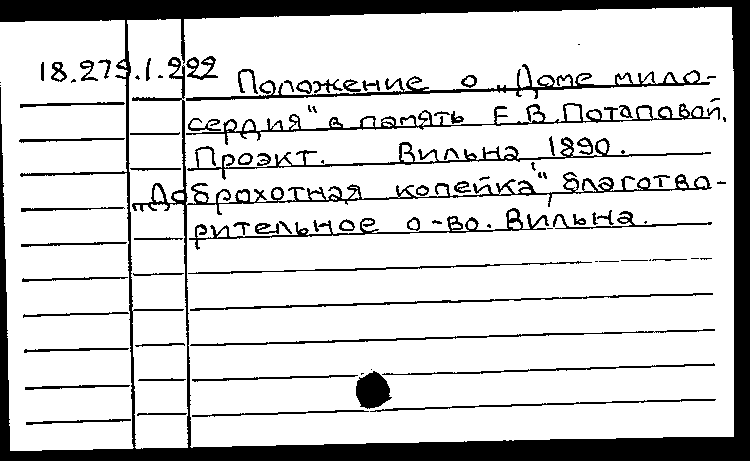 18.279.1.222
Положение о „Доме мило-
сердия" в память Е.В.Потаповой.
Проэкт. Вильна, 1890.
„Доброхотная копейка", благотво-
рительное о-во. Вильна.